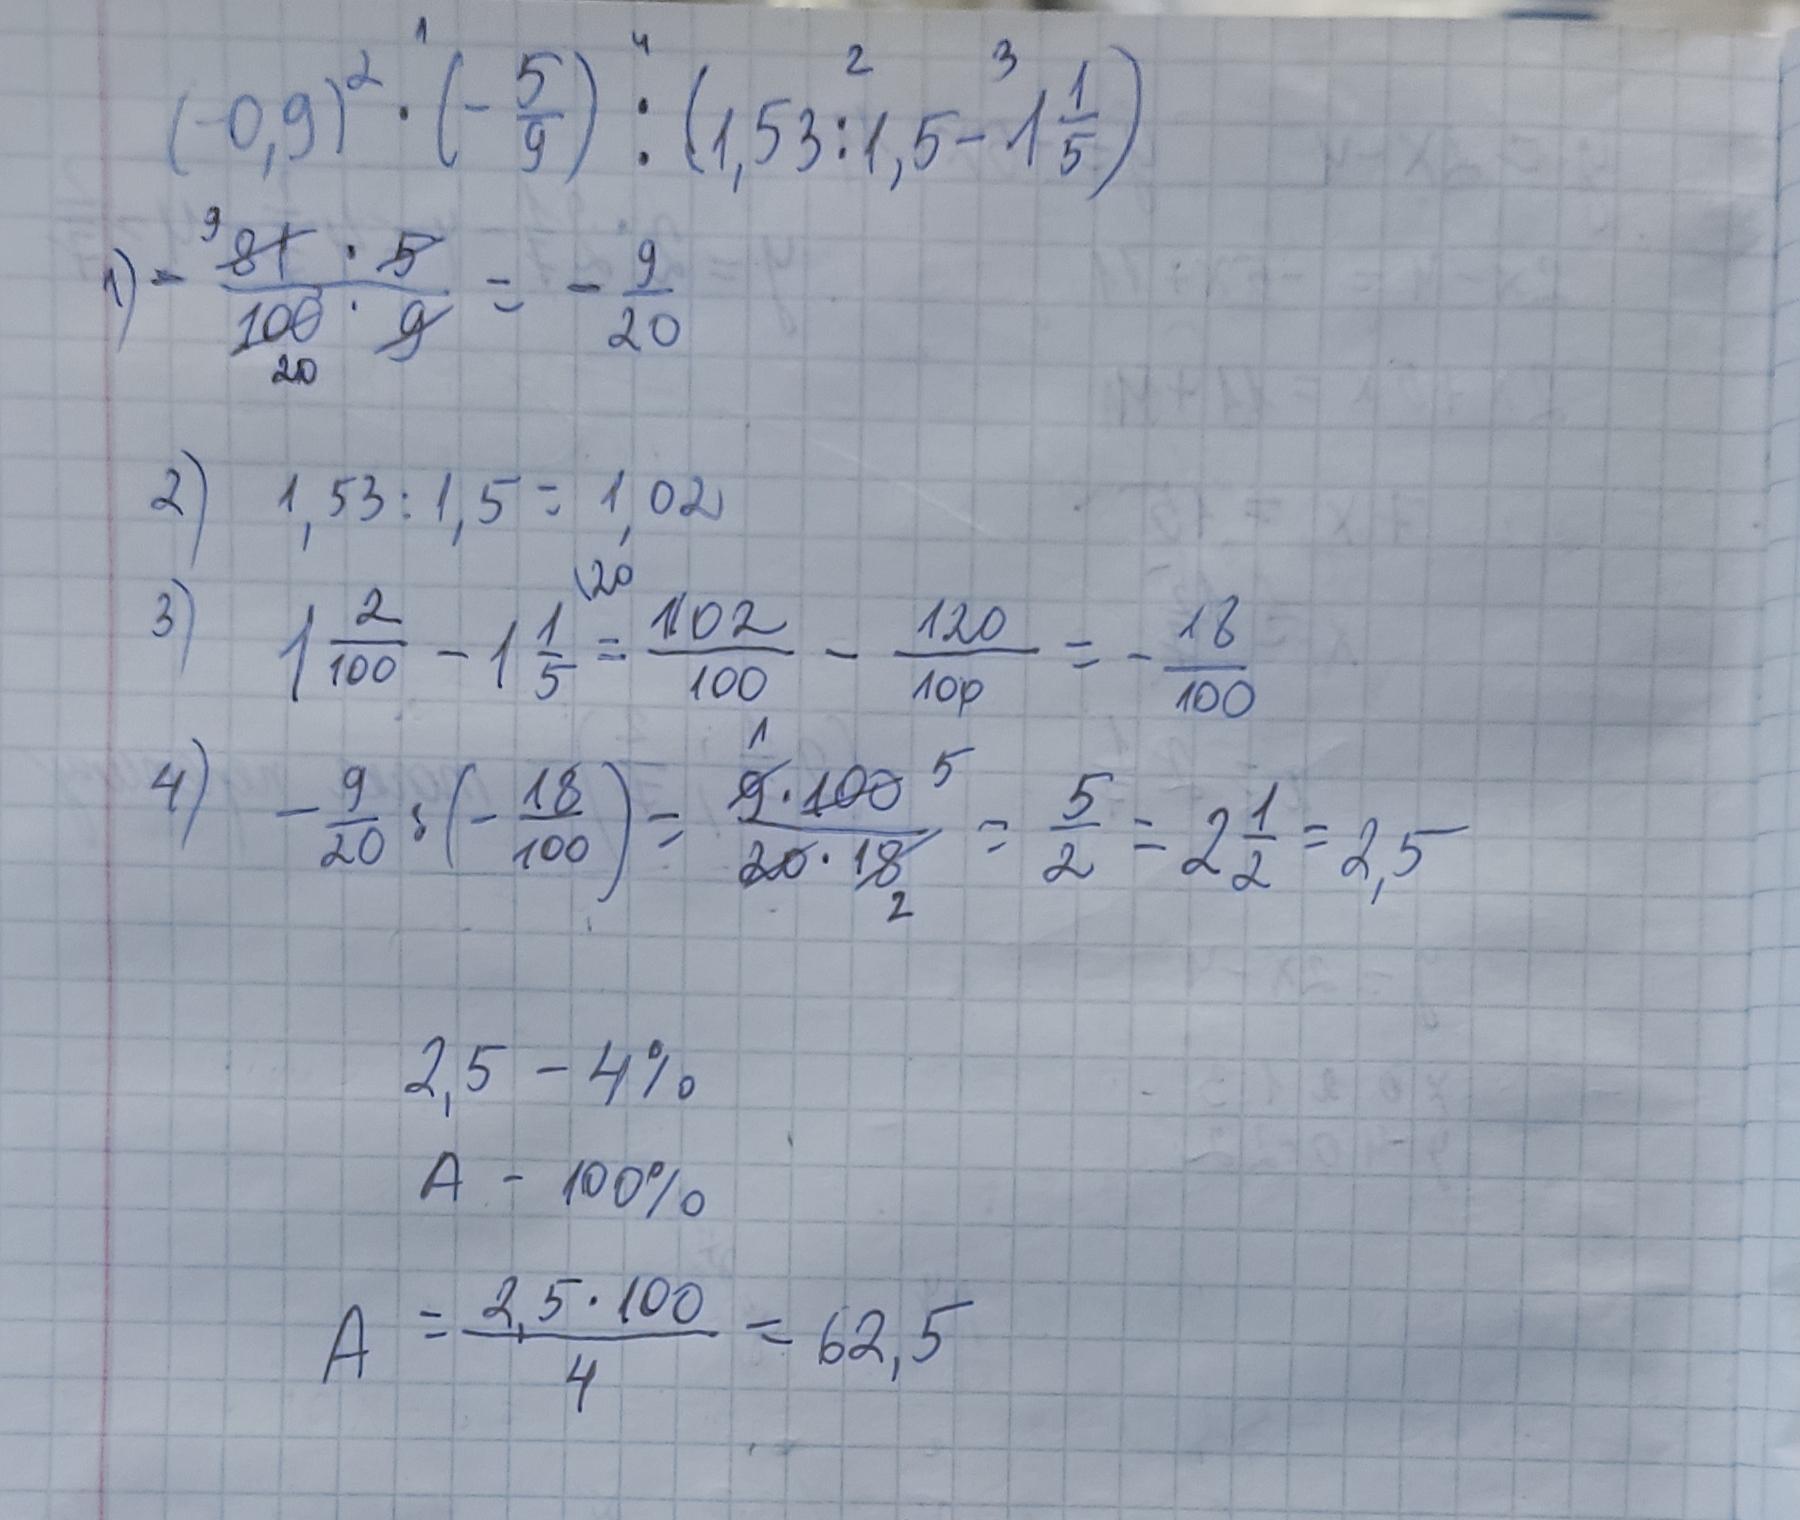 (-0,9)² · (-5/9) : (1,53:1,5-1 1/5)
1) - 81·5/100·9 = - 9/20
2) 1,53:1,5 = 1,02
3) 1 2/100 - 1 1/5 \20 = 102/100 - 120/100 = - 18/100
4) - 9/20 : (- 18/100) = 9·100/20·18 = 5/2 = 2 1/2 = 2,5
2,5 - 4%
A - 100%
A = 2,5·100/4 = 62,5